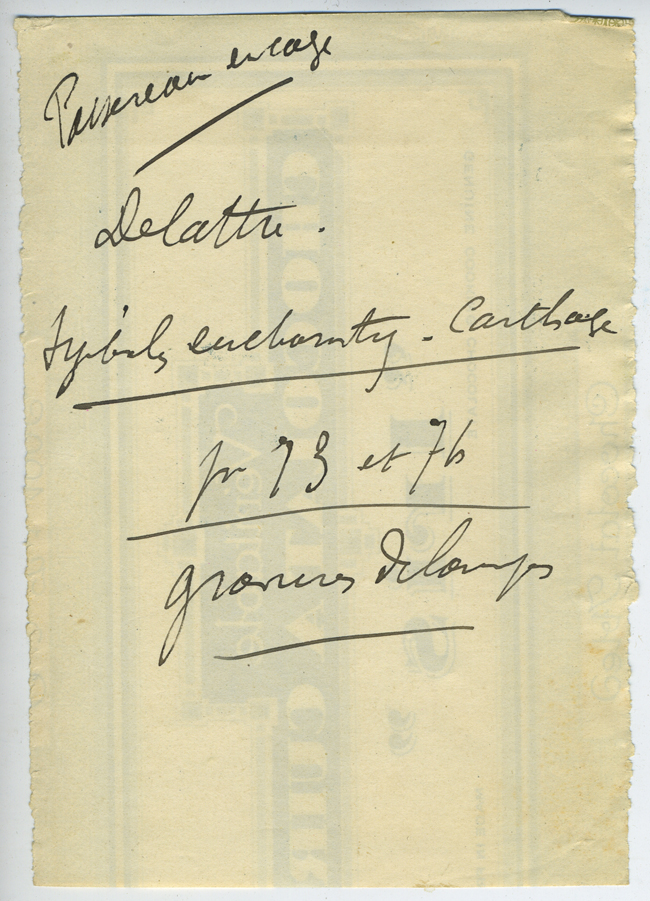 Passereau en cage
Delattre.
Symboles eucharistiq - Carthage
pp 73 et 76
gravures de lampes